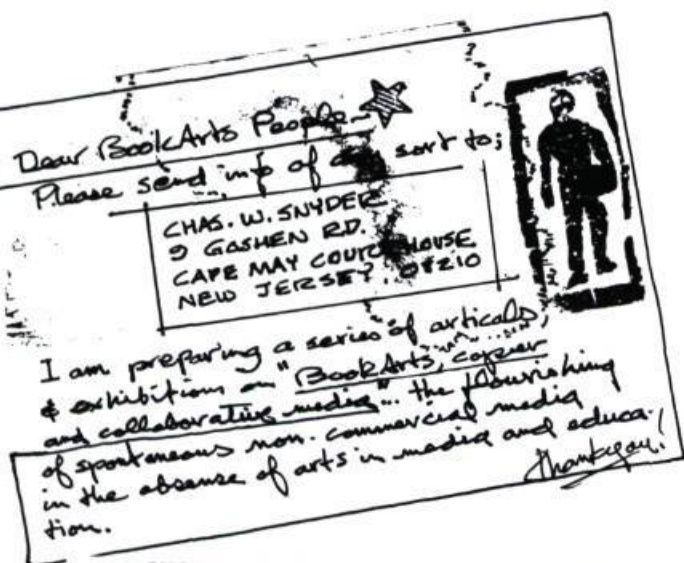 Dear BookArts People~
Please send info of any sort to;
CHAS. W. SNYDER
9 GOSHEN RD.
CAPE MAY COURTHOUSE
NEW JERSEY. 08210
I am preparing a series of articals,
& exhibitions on "BookArts, copier
and collaborative media"... the flourishing
of spontaneous non-commercial media
in the absense of arts in media and educa-
tion.
Thankyou!